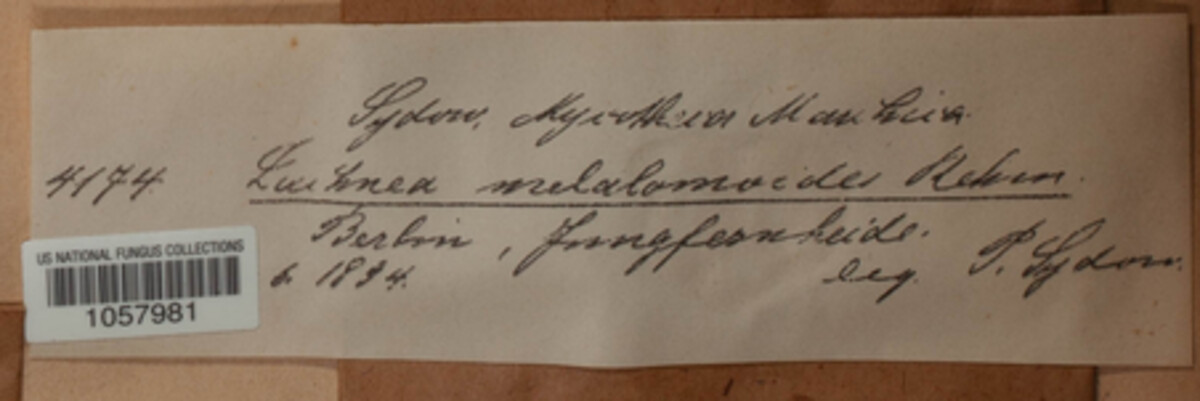 Sydow, Mycotheca Marchica
4174. Lachnea melalomoides Rehm.
Berlin, Jungfernheide.
6. 1894. leg. P. Sydow.
US NATIONAL FUNGUS COLLECTIONS
1057981